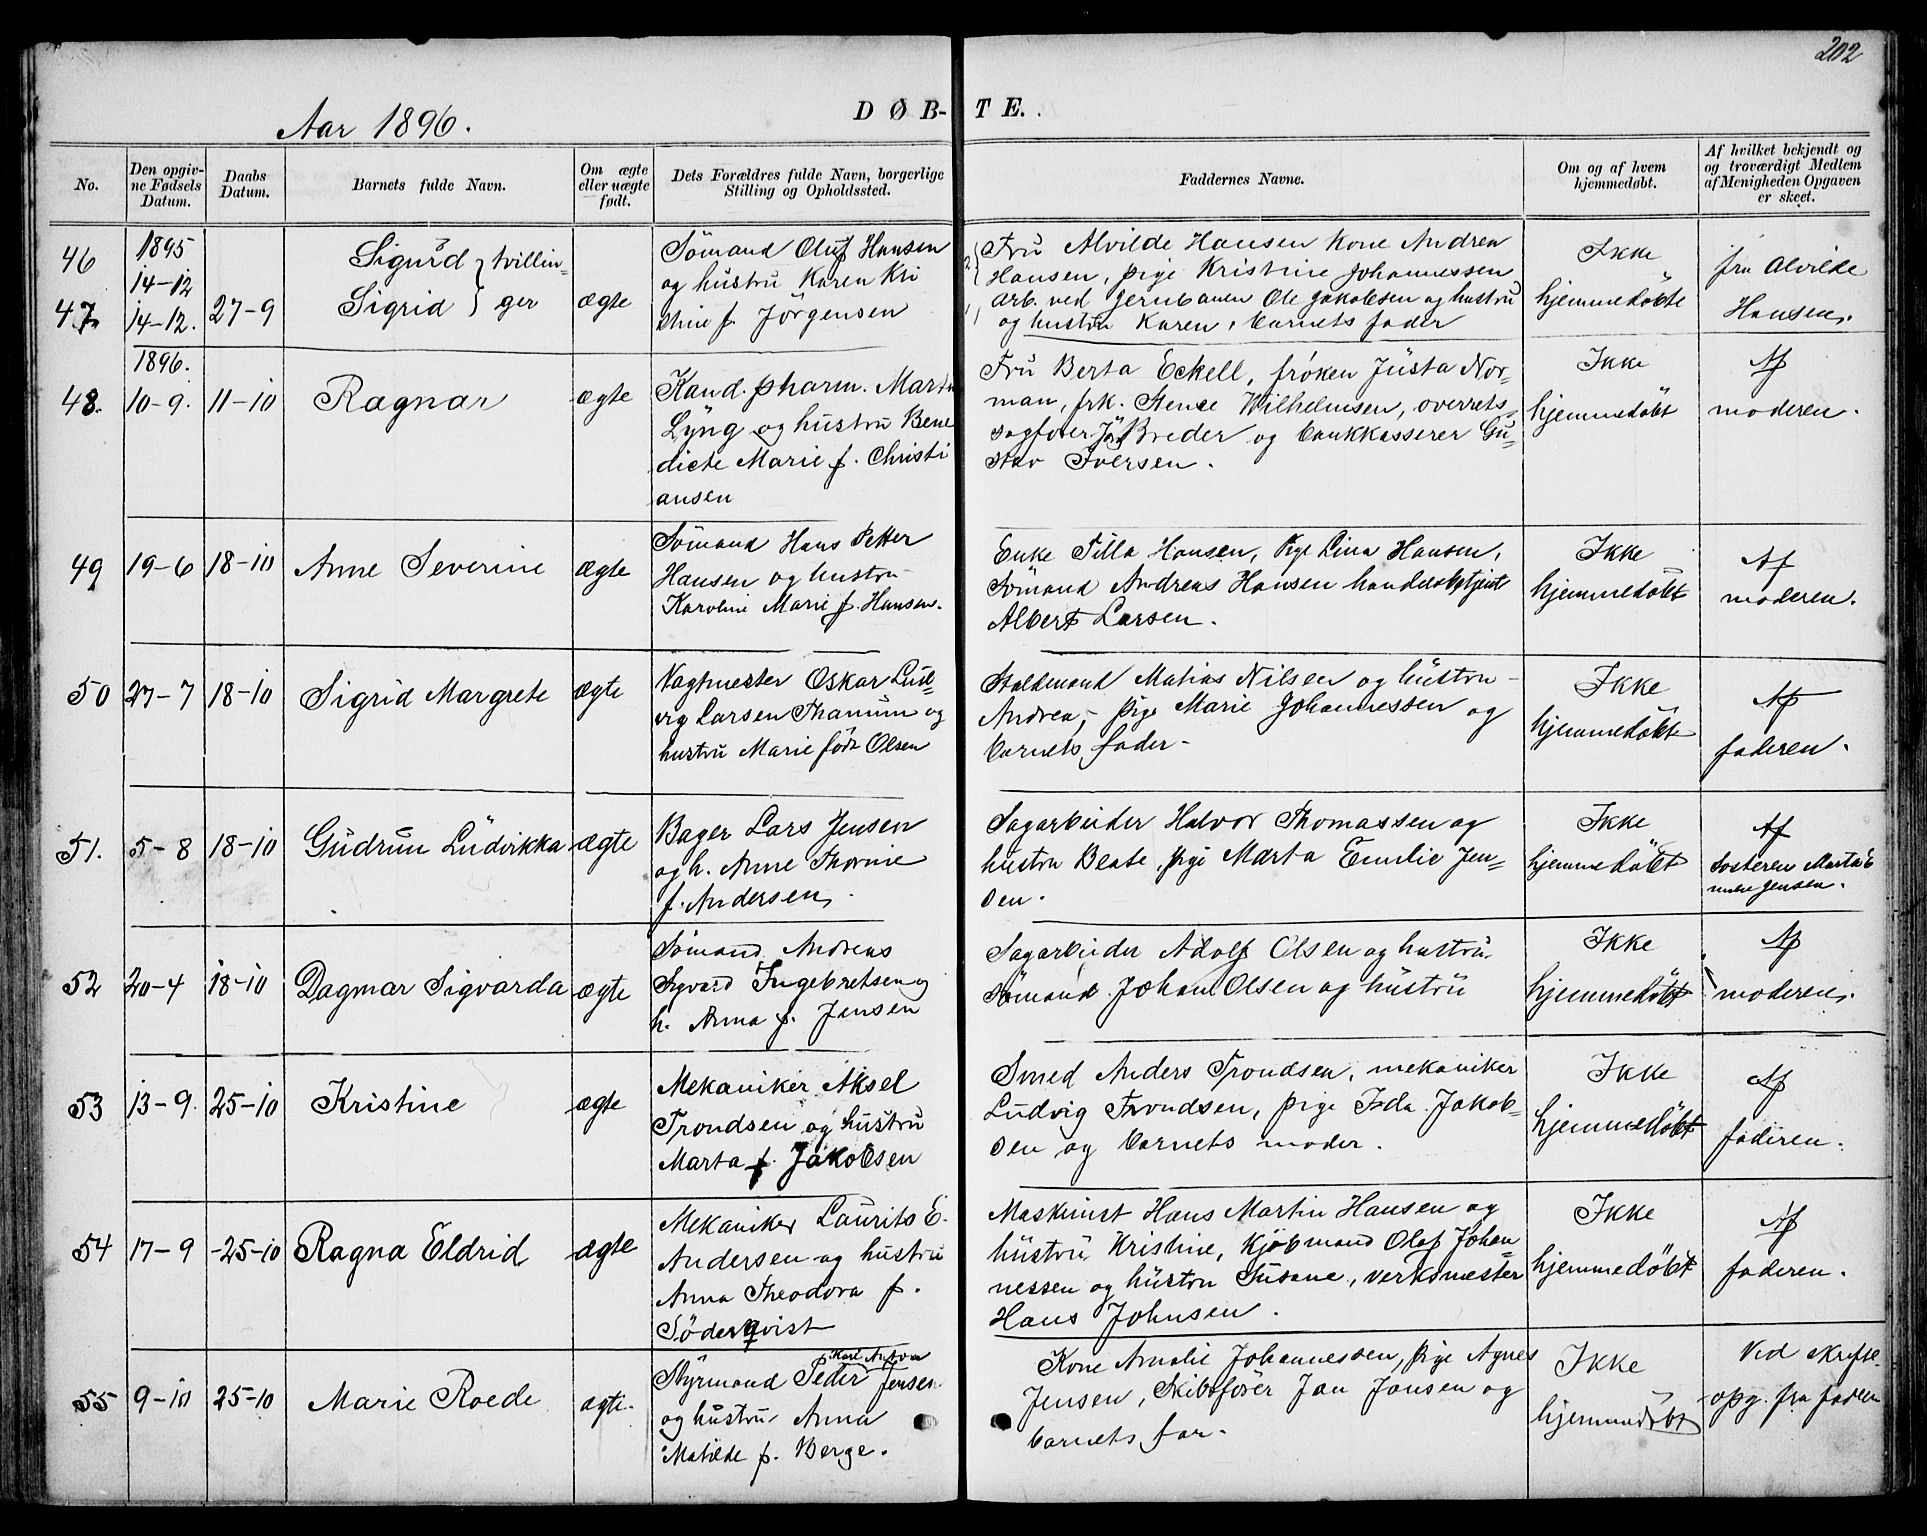 202
Aar 1896.
DØB-TE.
No.
Den opgiv-
ne Fødsels
Datum.
Daabs
Datum.
Barnets fulde Navn.
Om ægte
eller uægte
født.
Dets Forældres fulde Navn, borgerlige
Stilling og Opholdssted.
Faddernes Navne.
Om og af hvem
hjemmedøbt.
Af hvilket bekjendt og
og troværdigt Medlem
af Menigheden Opgaven
er skeet.
46
47
1895
14-12
14-12.
27-9
Sigurd } tvillin-
Sigrid } ger
ægte
Sömand Oluf Hansen
og hustru Karen Kri
stine f. Jörgensen
Fru Alvilde Hansen Kone Andrea
Hansen, pige Kristine Johannessen
arb. ved jernbanen Ole Jakobsen og hustru
og hustru Karen, barnets fader
Ikke
hjemmedöbte
fru Alvilde
Hansen.
48.
1896.
10-9.
11-10
Ragnar
ægte
Kand. pharm. Martin
Lyng og hustru Bene
dicte Marie f. Christi
ansen
Fru Berta Eckell, fröken Justa Nor-
man, frk. Stence Wilhelmsen, overrets-
sagförer Breder og bankkasserer Gu-
stav Iversen.
Ikke
hjemmedöbt
Af
moderen.
49
19-6
18-10
Anne Severine
ægte
Sömand Hans Petter
Hansen og hustru
Karoline Marie f. Hansen.
Enke Tilla Hansen, Pige Lina Hansen,
Sömand Andreas Hansen handelsbetjent
Albert Larsen.
Ikke
hjemmedöbt
Af
moderen.
50
27-7
18-10
Sigrid Margrete
ægte
Vagtmester Oskar Lud-
vig Larsen Thanum og
hustru Marie född Olsen
Staldmand Matias Nilsen og hustru
Andrea, pige Marie Johannessen og
barnets fader-
Ikke
hjemmedöbt
Af
faderen.
51.
5-8
18-10
Gudrun Ludvikka
ægte
Bager Lars Jensen
og h. Anne Thorine
f. Andersen.
Sagarbeider Halvor Thomassen og
hustru Beate, pige Marta Emilie Jen-
sen.
Ikke
hjemmedöbt
Af
Sösteren Marta E
milie Jensen.
52
20-4
18-10
Dagmar Sigvarda
ægte
Sömand Andreas
Sigvard Ingebretsen og
h. Anna f. Jensen
Sagarbeider Adolf Olsen og hustru
Sömand Johan Olsen og hustru
Ikke
hjemmedöbt
Af
moderen.
53
13-9.
25-10
Kristine
ægte
Mekaniker Aksel
Trondsen og hustru
Marta f. Jakobsen
Smed Anders Trondsen, mekaniker
Ludvig Trondsen, pige Ida Jakob-
sen og barnets moder.
Ikke
hjemmedöbt
Af
faderen.
54
17-9
-25-10
Ragna Eldrid
ægte
Mekaniker Laurits E.
Andersen og hustru
Anna Theodora f.
Söderqvist
Maskinist Hans Martin Hansen og
hustru Kristine, Kjöbmand Olaf Johan-
nessen og hustru Susane, verksmester
Hans Johnsen.
Ikke
hjemmedöbt
Af
faderen.
55
9-10
25-10
Marie Roede
ægte.
Karl Anton
Styrmand Peder Jensen
og hustru Anna
Matilde f. Berge.
Kone Amalie Johannessen, pige Agnes
Jensen, Skibsförer Jan Jansen og
barnets far.
Ikke
hjemmedöbt
Ved skriftl.
opg. fra faderen